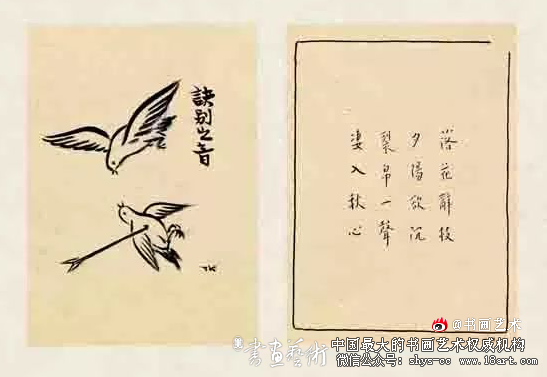 訣别之音
TK
落花辭枝
夕陽欲沉
裂帛一聲
凄入秋心
@书画艺术
書畫藝術
中国最大的书画艺术权威机构
微信公众号: shys-cc www.18art.com